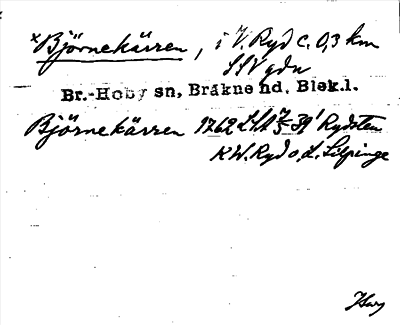 ×Björnekärren, i V. Ryd c. 0,3 km
SSV gdn
Br.-Hoby sn, Bräkne hd, Blek.l.
Björnekärren 1762 LSA Rydsten
V. Ryd o d. Silpinge